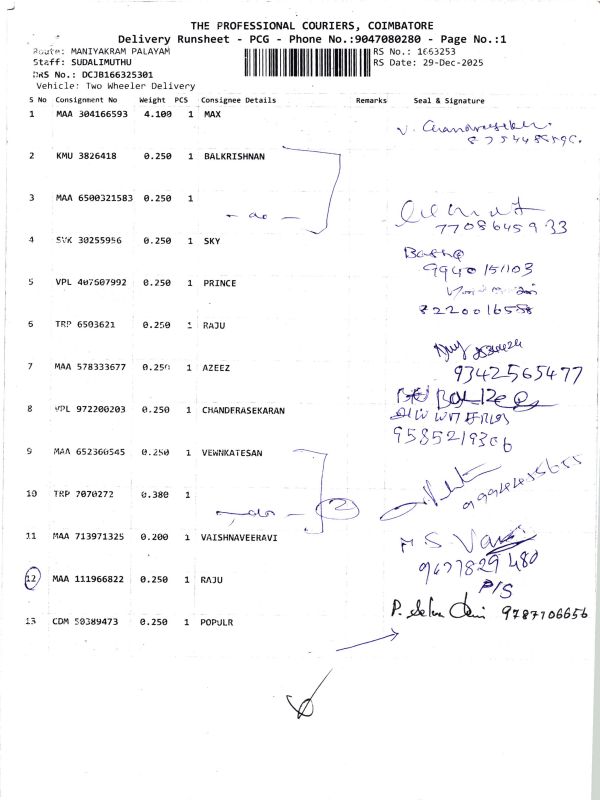 THE PROFESSIONAL COURIERS, COIMBATORE
Delivery Runsheet - PCG - Phone No.:9047080280 - Page No.:1
Route: MANIYAKRAM PALAYAM RS No.: 1663253
Staff: SUDALIMUTHU RS Date: 29-Dec-2025
DRS No.: DCJB166325301
Vehicle: Two Wheeler Delivery
S No Consignment No Weight PCS Consignee Details Remarks Seal & Signature
1 MAA 304166593 4.100 1 MAX
V. Chandrasekar.
2 KMU 3826418 0.250 1 BALKRISHNAN
3 MAA 6500321583 0.250 1
- do -
7708645933
4 SVK 30255956 0.250 1 SKY
9940151103
5 VPL 407607992 0.250 1 PRINCE
8220016558
6 TRP 6503621 0.250 1 RAJU
7 MAA 578333677 0.250 1 AZEEZ
9342565477
8 VPL 972200203 0.250 1 CHANDFRASEKARAN
9585219306
9 MAA 652360545 0.250 1 VEWNKATESAN
10 TRP 7070272 0.380 1
- do - 2
11 MAA 713971325 0.200 1 VAISHNAVEERAVI
9677829480
12 MAA 111966822 0.250 1 RAJU
P/S
13 CDM 50389473 0.250 1 POPULR
9787106656